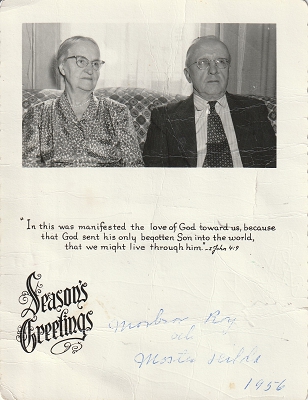 "In this was manifested the love of God toward us, because
that God sent his only begotten Son into the world,
that we might live through him." - I John 4:9
Season's
Greetings
Morbror Roy
och
Moster Hilda
1956